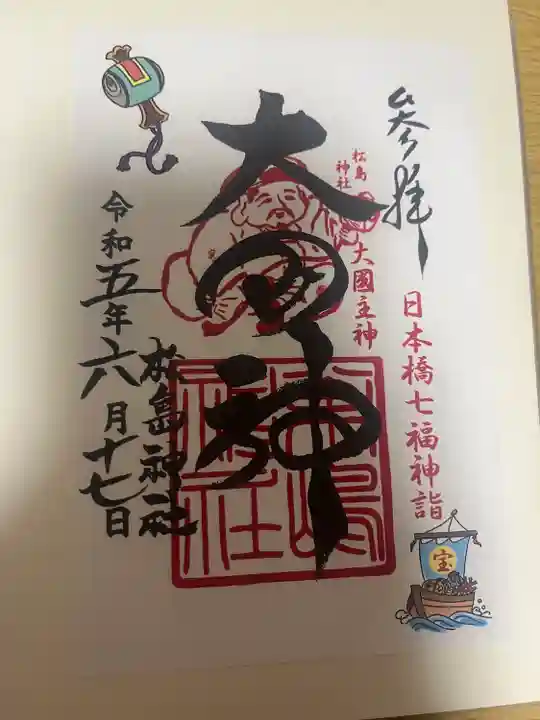 参拝
日本橋七福神詣
松島
神社
大國主神
大国神
松島神社
令和五年六月十七日
宝